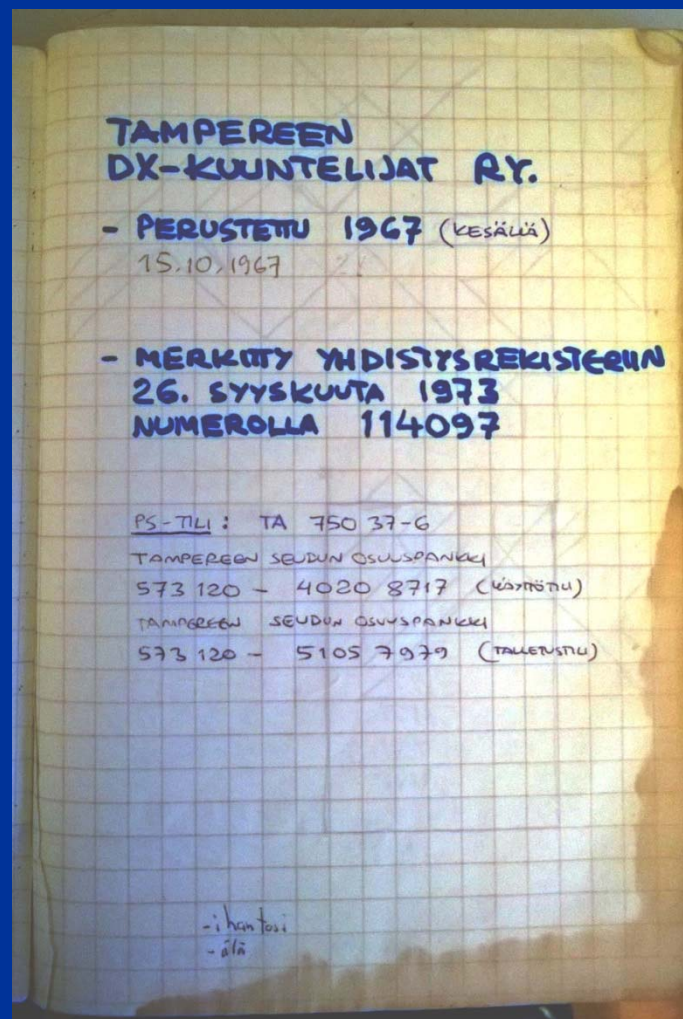 TAMPEREEN
DX-KUUNTELIJAT RY.
- PERUSTETTU 1967 (KESÄLLÄ)
15.10.1967
- MERKITTY YHDISTYSREKISTERIIN
26. SYYSKUUTA 1973
NUMEROLLA 114097
PS-TILI: TA 750 37-6
TAMPEREEN SEUDUN OSUUSPANKKI
573 120 - 4020 8717 (KÄYTTÖTILI)
TAMPEREEN SEUDUN OSUUSPANKKI
573 120 - 5105 7979 (TALLETUSTILI)
- ihan tosi
- älä